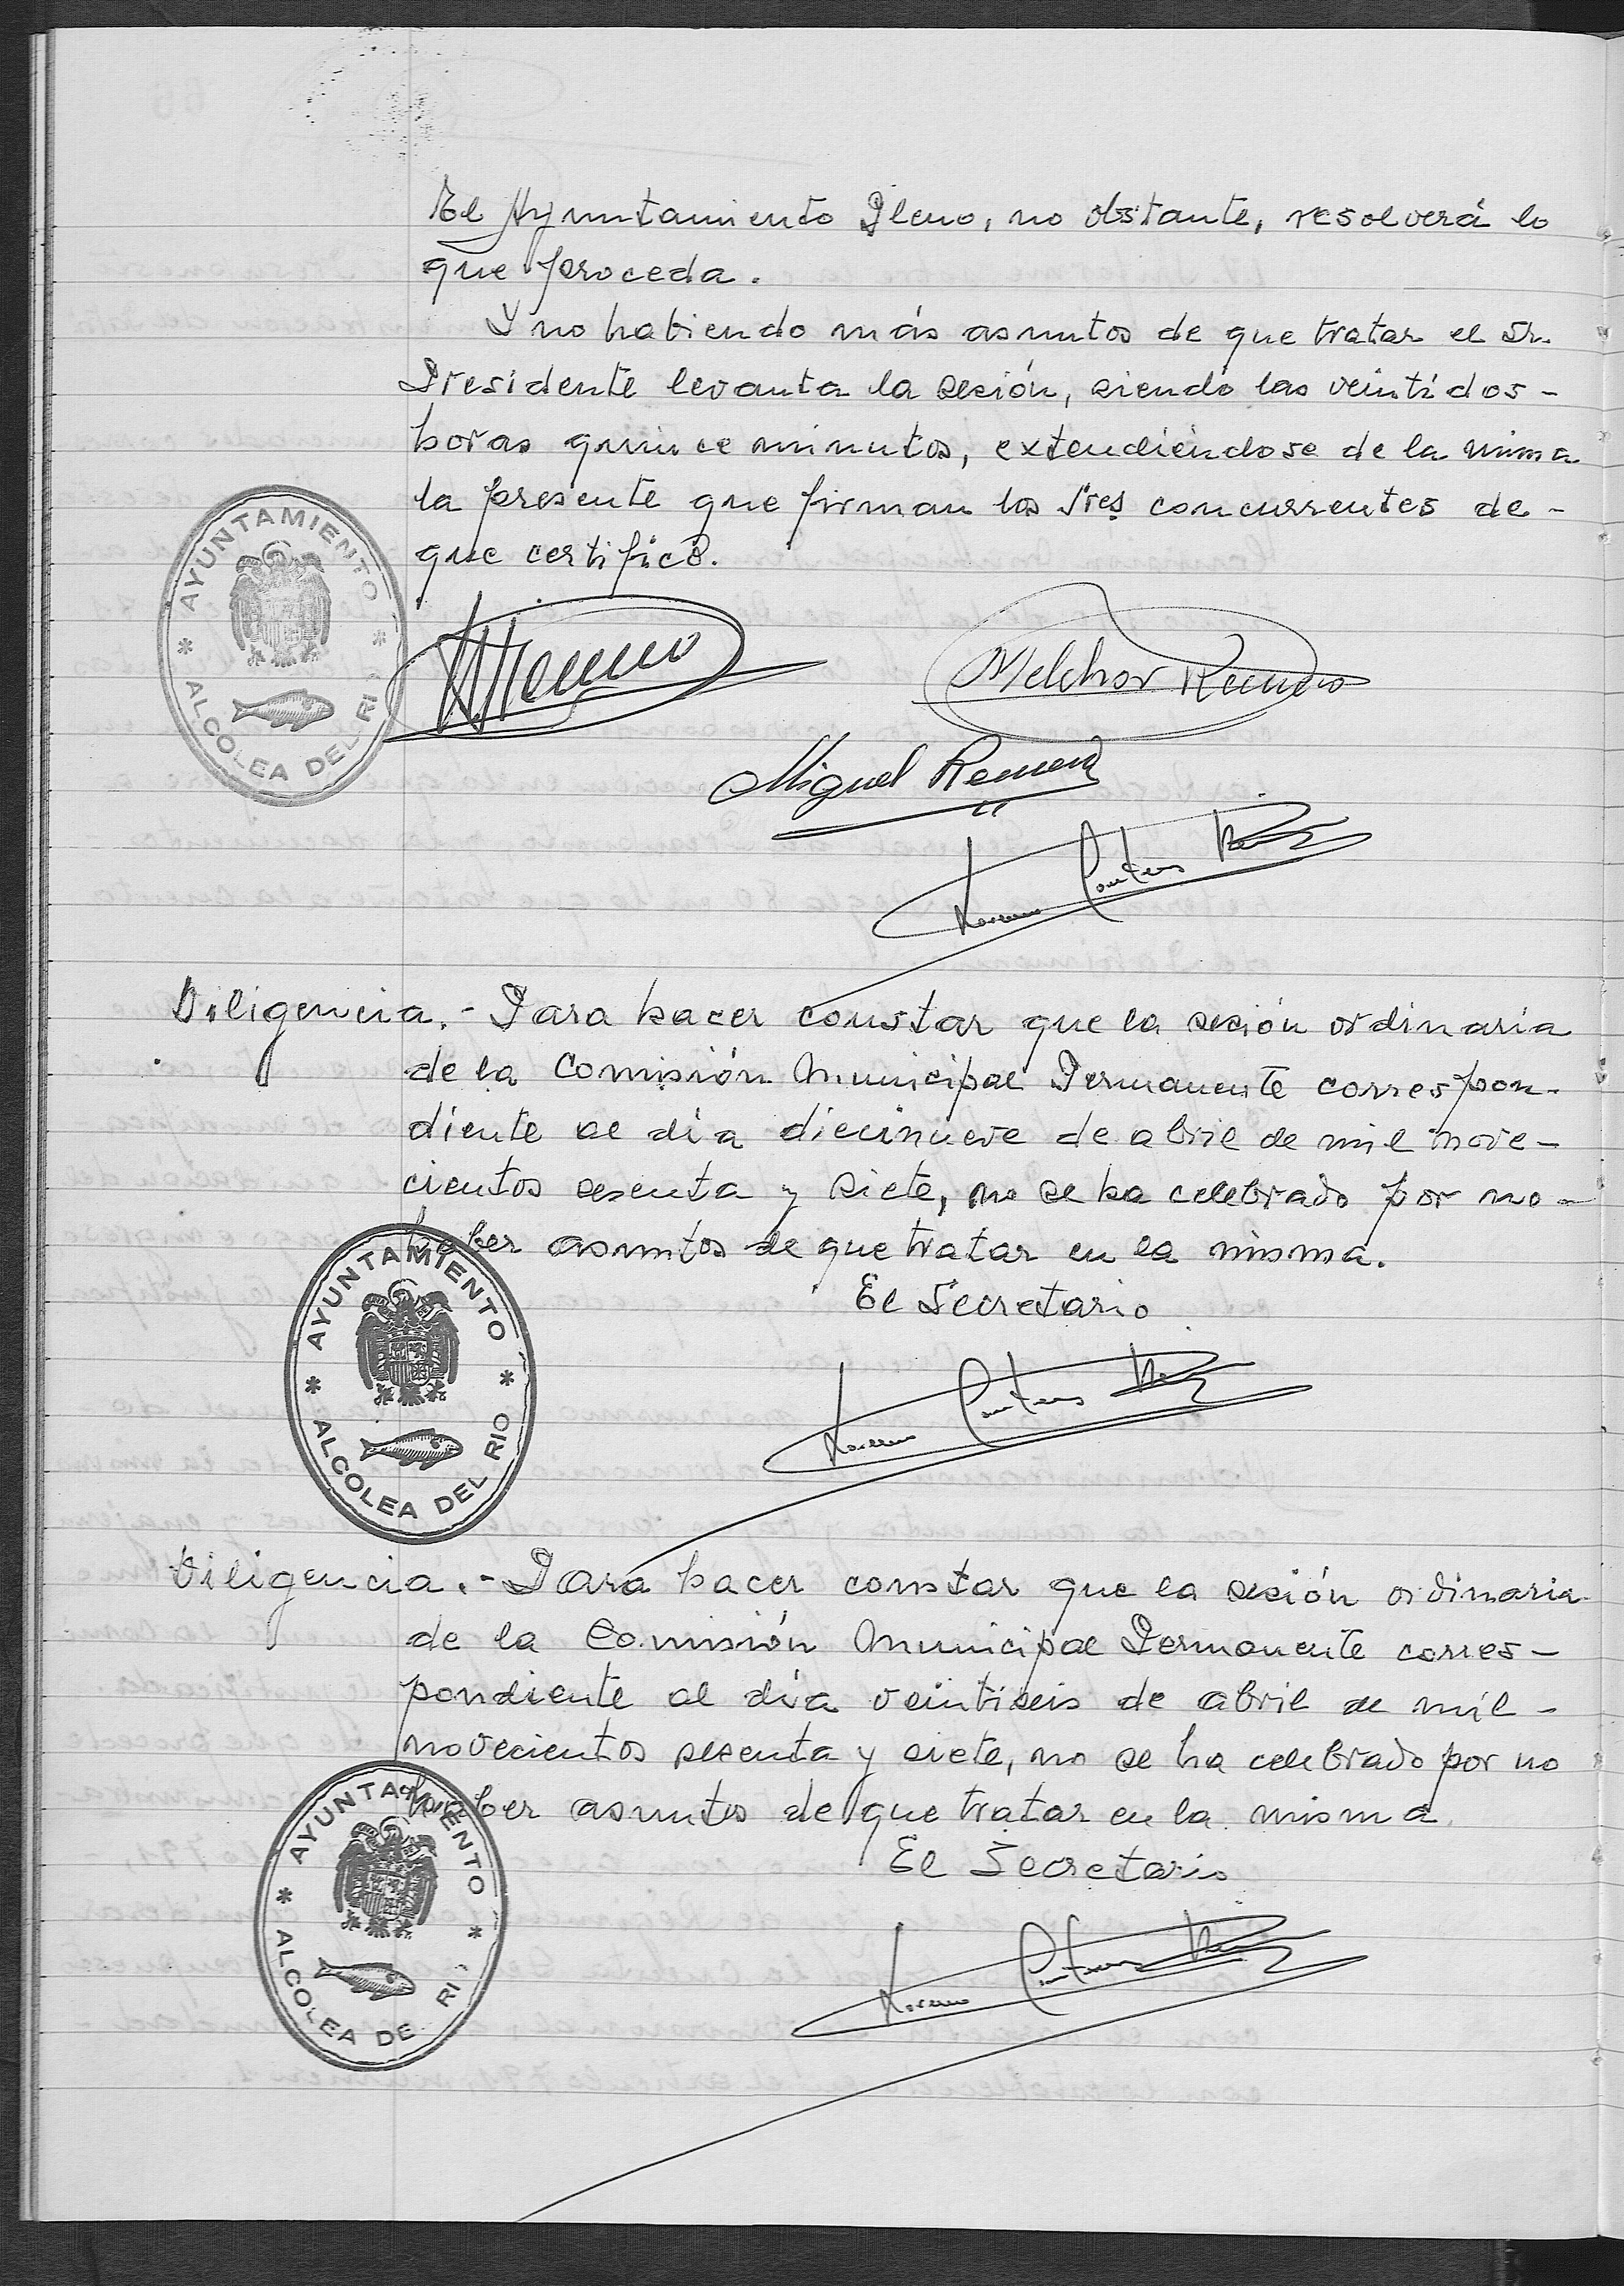 El Ayuntamiento Pleno, no obstante, resolverá lo
que proceda.
Y no habiendo más asuntos de que tratar el Sr.
Presidente levanta la sesión, siendo las veintidos -
horas quince minutos, extendiéndose de la misma
la presente que firman los Sres concurrentes de -
que certifico.
* AYUNTAMIENTO *
ALCOLEA DEL RI
Melchor Romero
Miguel Romero
Diligencia.- Para hacer constar que la sesión ordinaria
de la Comisión Municipal Permanente correspon-
diente al día diecinueve de abril de mil nove-
cientos sesenta y siete, no se ha celebrado por no -
haber asuntos de que tratar en la misma.
El Secretario
* AYUNTAMIENTO *
ALCOLEA DEL RIO
Diligencia.- Para hacer constar que la sesión ordinaria
de la Comisión Municipal Permanente corres-
pondiente al día veintiseis de abril de mil -
novecientos sesenta y siete, no se ha celebrado por no
haber asuntos de que tratar en la misma.
El Secretario
* AYUNTAMIENTO *
ALCOLEA DE RI